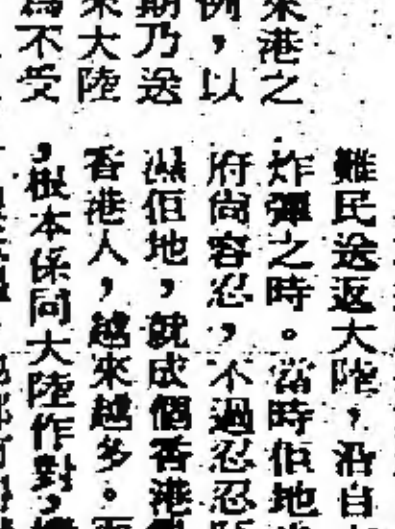 來港之
例，以
期乃送
來大陸
為不受
難民送返大陸，沿自
炸彈之時。當時佢地
府尚容忍，不過忍忍
濕佢地，就成個香港
香港人，越來越多。而
，根本係同大陸作對，